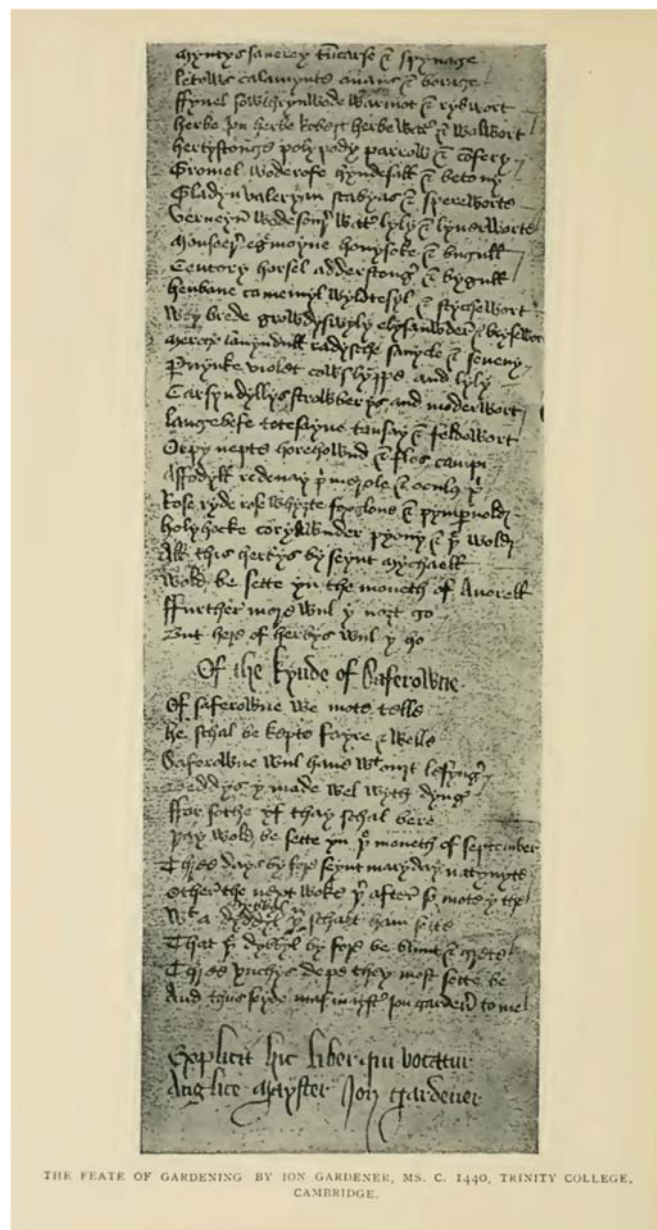 Myntys sauerey tuncarse & spynage
letows calamynte auans & borage
ffynel sowthrynwode warmot & rybwort
herbe Ion herbe Robert herbe Watr & walwort
hertystonge polypody parrow & comfery
Gromel woderofe hyndesall & betony
Gladyn valeryan scabyas & sperewort
verueyn wodesour watr lyly & lyuerworte
Mouseer egrimoyne honysoke & bugull
Centory horsel adderstong & bygull
henbane camemyl wyldtesyl & stychewort
Weybrede growdyswyly elysauwder & brysewort
Merege lauyndull radysche sanycle & seueny
Peruynke violet cowslyppe and lyly
Carsyndyllys strowberys and moderwort
langebefe totesayne tansay & feldewort
Orpy nepte horehownd & flos campi
Affodyll redenay primerole & oculus xi
Rose ryde rose whyte foxgloue & pympernold
holyhocke coryawnder pyony & wold
All this herbys by seynt Mychaell
Wold be sette yn the moneth of Auerell
ffurther more wul y noȝt go
But here of herbys wul y ho
Of the kynde of Saferowne
Of saferowne we mote telle
he schal be kepte fayre & welle
Saferowne wul haue wtouȝt lesyng
Beddys y made wel wyth dyng
ffor sothe yf thay schal bere
Thay wold be sette yn þe moneth of september
Three days by fore seynt mary day natyuyte
other the next woke þer after so mote y the
Wt a dybbyl þu schalt ham sette
That þe dybbyl by fore be blunt & grete
Three ynchys depe they most sette be
And thus seyde mayster Ion gardener to me
Explicit hic liber qui vocatur
Anglice Mayster Ion Gardener
THE FEATE OF GARDENING BY ION GARDENER, MS. C. 1440, TRINITY COLLEGE,
CAMBRIDGE.